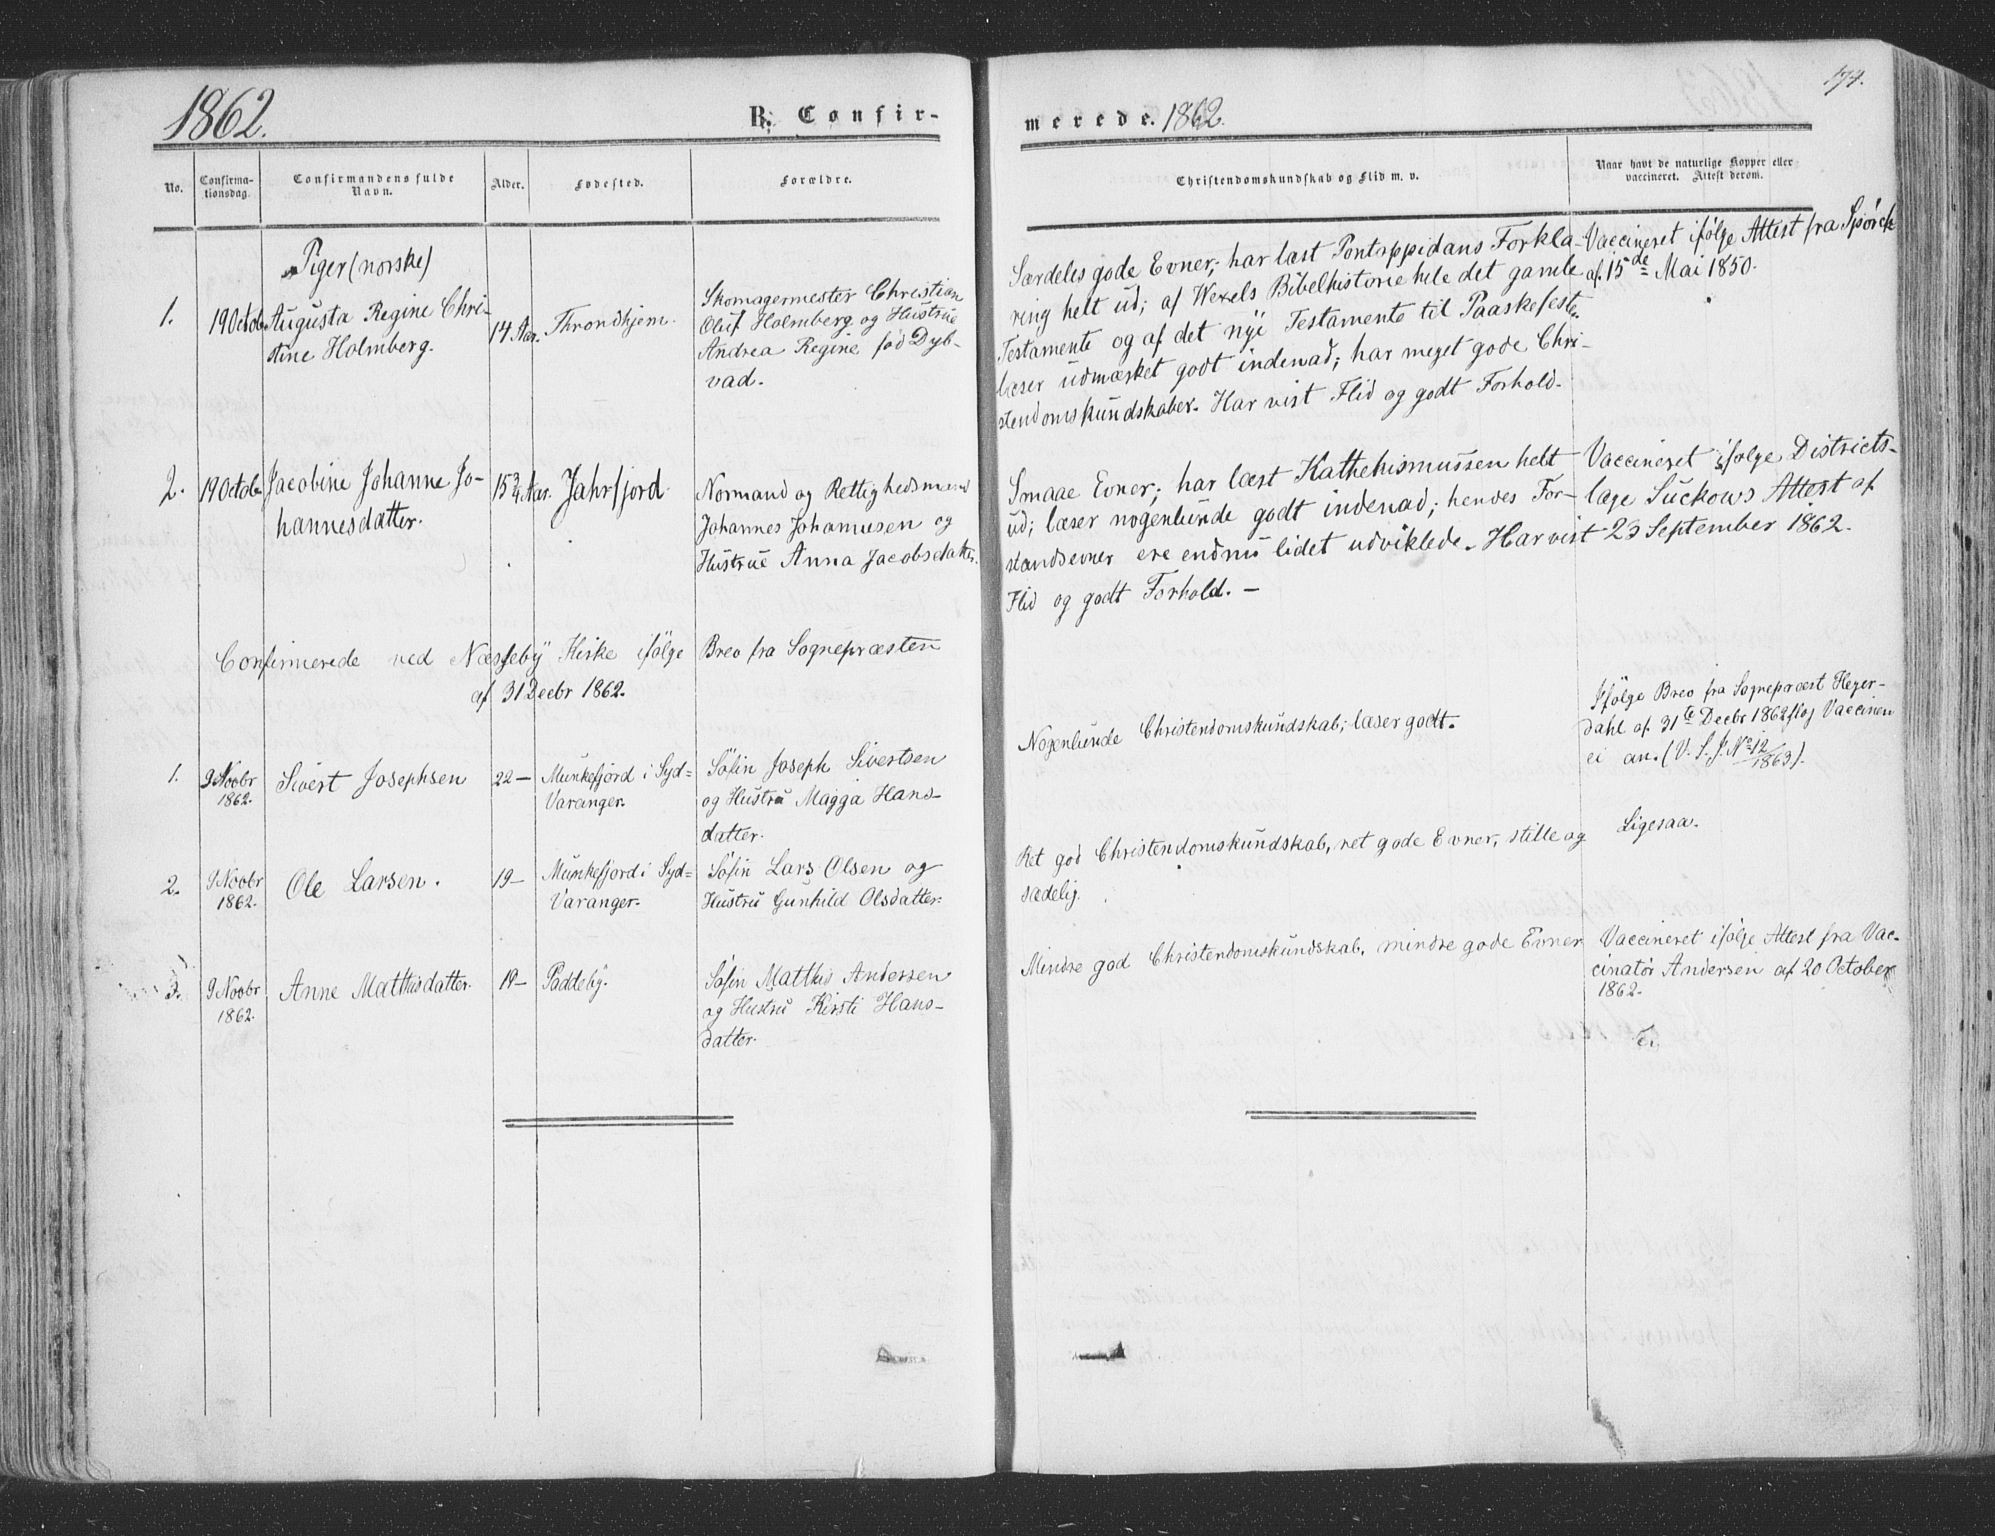 1862.
B. Confir-
No.
Confirma-
tionsdag.
Confirmandens fulde
Navn.
Alder.
Fødested.
Forældre.
Piger (norske)
1.
19 Octob.
Augusta Regine Chri-
stine Holmberg.
14 Aar.
Throndhjem.
Skomagermester Christian
Oluf Holmberg og Hustrue
Andrea Regine fød Dyb-
vad.
2.
19 Octob.
Jacobine Johanne Jo-
hannesdatter.
15 3/4 Aar.
Jahrfjord
Normand og Rettighedsmand
Johannes Johannesen og
Hustrue Anna Jacobsdatter.
Confirmerede ved Næsseby Kirke ifölge Brev fra Sognepræsten
af 31 Decbr 1862.
1.
9 Novbr
1862.
Sivert Josephsen
22 —
Munkefjord i Syd-
Varanger.
Söfin Joseph Sivertsen
og Hustru Magga Hans-
datter.
2.
9 Novbr
1862.
Ole Larsen.
19 —
Munkefjord i Syd=
Varanger.
Söfin Lars Olsen og
Hustru Gunhild Olsdatter.
3.
9 Novbr
1862.
Anne Mathisdatter.
19 —
Paddeby.
Söfin Matthis Andersen
og Hustru Kirsti Hans-
datter.
merede. 1862.
174.
Christendomskundskab og Flid m. v.
Naar havt de naturlige Kopper eller
vaccineret. Attest derom.
Særdeles gode Evner; har læst Pontoppidans Forkla-
ring helt ud; af Wexels Bibelhistorie hele det gamle
Testamente og af det nye Testamente til Paaskefesten
læser udmærket godt indenad; har meget gode Chri-
stendomskundskaber. Har vist Flid og godt Forhold.
Vaccineret ifølge Attest fra Spörck
af 15de Mai 1850.
Smaae Evner; har læst Kathehismussen helt
ud; læser nogenlunde godt indenad; hendes For-
standsevner ere endnu lidet udviklede. Har vist
Flid og godt Forhold. —
Vaccineret ifølge Districts-
læge Suckows Attest af
23 September 1862.
Nogenlunde Christendomskundskab; læser godt.
Ifölge Brev fra Sognepræst Heyer-
dahl af 31te Decbr 1862 slog Vaccinen
ei an. (V. S. J. No 12/1863).
Ret god Christendomskundskab, ret gode Evner, stille og
sædelig.
Ligesaa.
Mindre god Christendomskundskab, mindre gode Evner
Vaccineret ifölge Attest fra Vac-
cinatör Andersen af 20 October
1862.